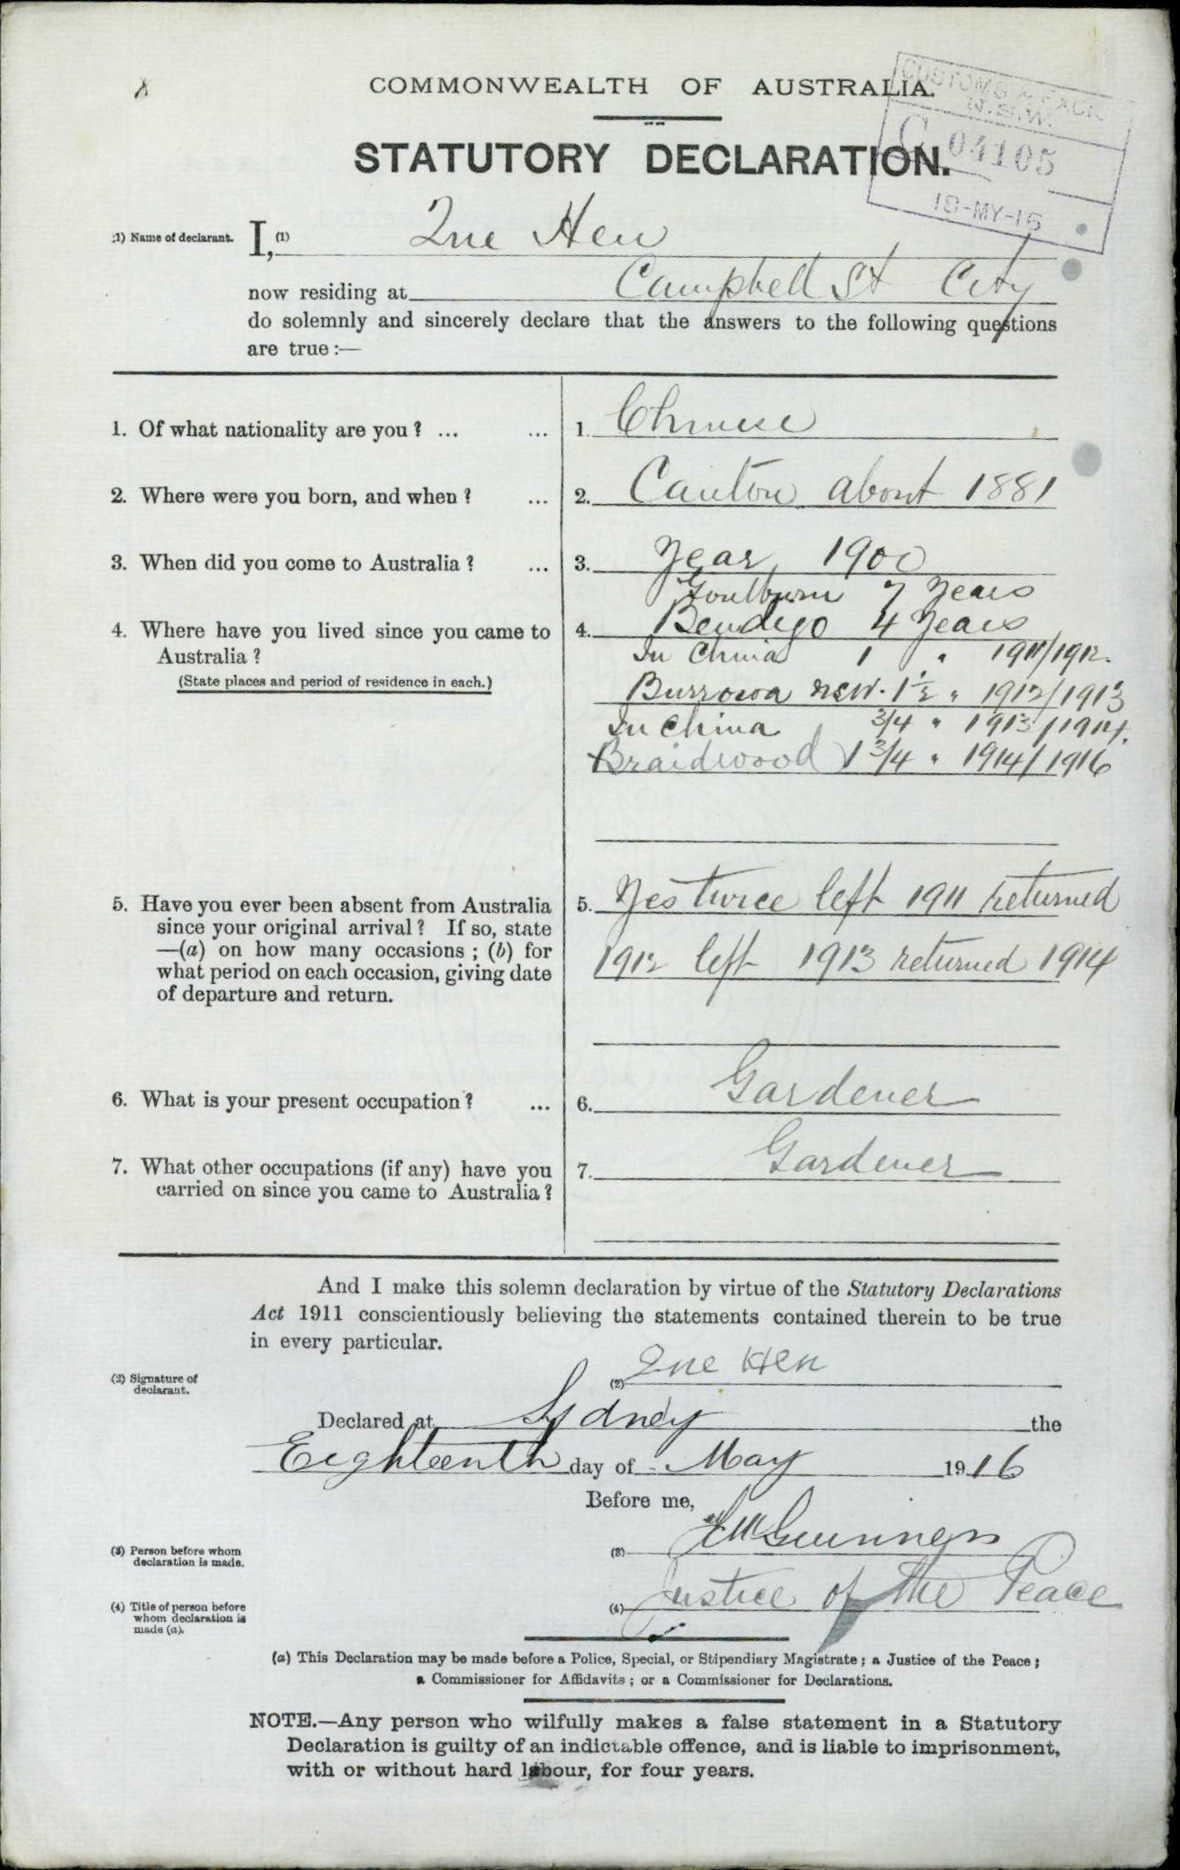 COMMONWEALTH OF AUSTRALIA.
CUSTOMS & EXCISE
N.S.W.
C 04105
19-MY-16
STATUTORY DECLARATION.
(1) Name of declarant. I, (1) Que Hen
now residing at Campbell St City
do solemnly and sincerely declare that the answers to the following questions
are true :—
1. Of what nationality are you ? ... ... 1. Chinese
2. Where were you born, and when ? ... 2. Canton about 1881
3. When did you come to Australia ? ... 3. Year 1900
Goulburn 7 Years
4. Where have you lived since you came to 4. Bendigo 4 Years
Australia ? In China 1 " 1911/1912.
(State places and period of residence in each.) Burrowa NSW. 1½ " 1912/1913
In China 3/4 " 1913/1914.
Braidwood 1 3/4 " 1914/1916
5. Have you ever been absent from Australia 5. Yes twice left 1911 returned
since your original arrival ? If so, state
—(a) on how many occasions ; (b) for 1912 left 1913 returned 1914
what period on each occasion, giving date
of departure and return.
6. What is your present occupation ? ... 6. Gardener
7. What other occupations (if any) have you 7. Gardener
carried on since you came to Australia ?
And I make this solemn declaration by virtue of the Statutory Declarations
Act 1911 conscientiously believing the statements contained therein to be true
in every particular.
(2) Signature of declarant. (2) Que Hen
Declared at Sydney the
Eighteenth day of May 1916
Before me,
(3) Person before whom declaration is made. (3) McGuinness
(4) Title of person before whom declaration is made (a). (4) Justice of the Peace
(a) This Declaration may be made before a Police, Special, or Stipendiary Magistrate ; a Justice of the Peace ;
a Commissioner for Affidavits ; or a Commissioner for Declarations.
NOTE.—Any person who wilfully makes a false statement in a Statutory
Declaration is guilty of an indictable offence, and is liable to imprisonment,
with or without hard labour, for four years.